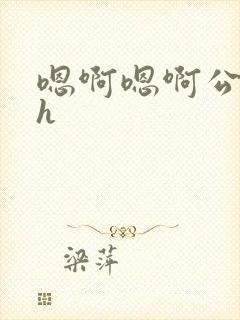 嗯啊嗯啊公
h
梁萍